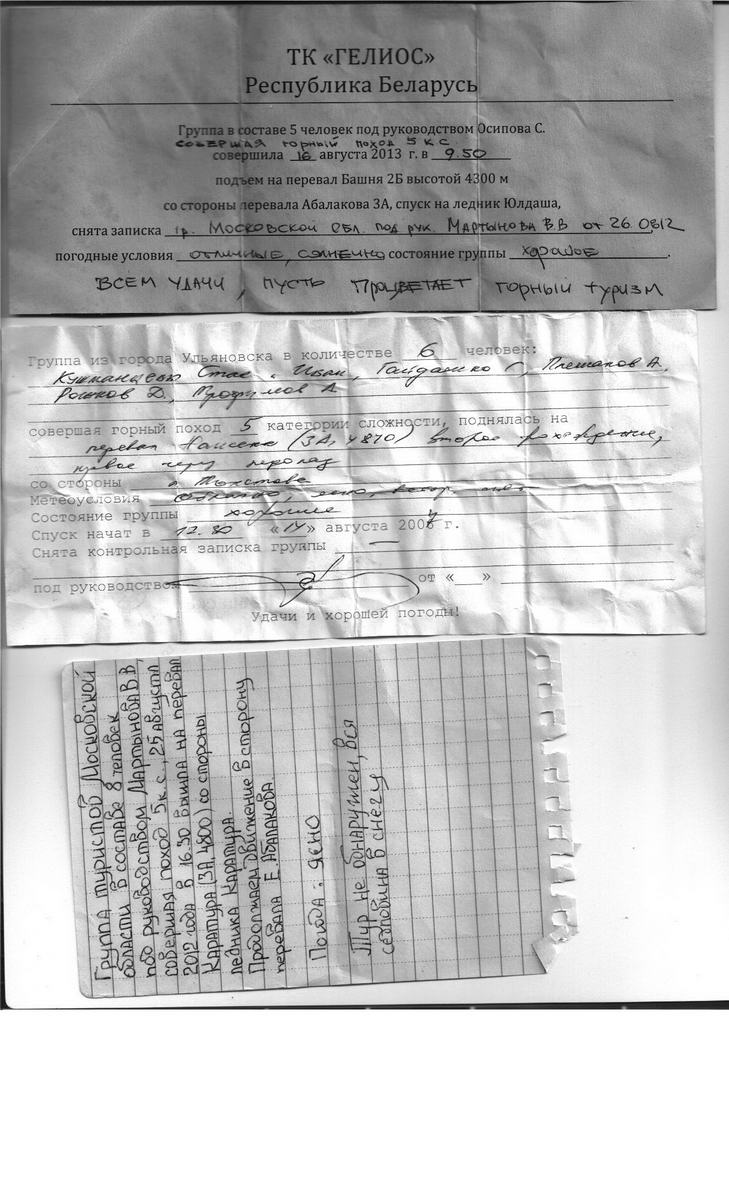 ТК «ГЕЛИОС»
Республика Беларусь
Группа в составе 5 человек под руководством Осипова С.
СОВЕРШАЯ ГОРНЫЙ ПОХОД 5 К С
совершила 16 августа 2013 г. в 9.50
подъем на перевал Башня 2Б высотой 4300 м
со стороны перевала Абалакова 3А, спуск на ледник Юлдаша,
снята записка гр. МОСКОВСКОЙ ОБЛ. ПОД РУК. МАРТЫНОВА В.В ОТ 26.0812
погодные условия ОТЛИЧНЫЕ, СОЛНЕЧНО состояние группы ХОРОШОЕ.
ВСЕМ УДАЧИ, ПУСТЬ ПРОЦВЕТАЕТ ГОРНЫЙ ТУРИЗМ
Группа из города Ульяновска в количестве 6 человек:
Стас, Иван, Гайданско Плешаков А,
Рожков Д.,
совершая горный поход 5 категории сложности, поднялась на
перевал Нансена (3А, 4870) второе прохождение,
первое через
со стороны л.
Метеоусловия облачно, ясно,
Состояние группы хорошее
Спуск начат в 12.30 «14» августа 200 г.
Снята контрольная записка группы —
под руководством от « »
Удачи и хорошей погоды!
Группа туристов Московской
области в составе 8 человек
под руководством Мартынова В.В,
совершая поход 5к.с., 25 августа
2012 года в 16.30 вышла на перевал
Каратура (3А, 4800) со стороны
ледника Каратура.
Продолжаем движение в сторону
перевала Е. Абалакова.
Погода: ясно
Тур не обнаружен, вся
седловина в снегу